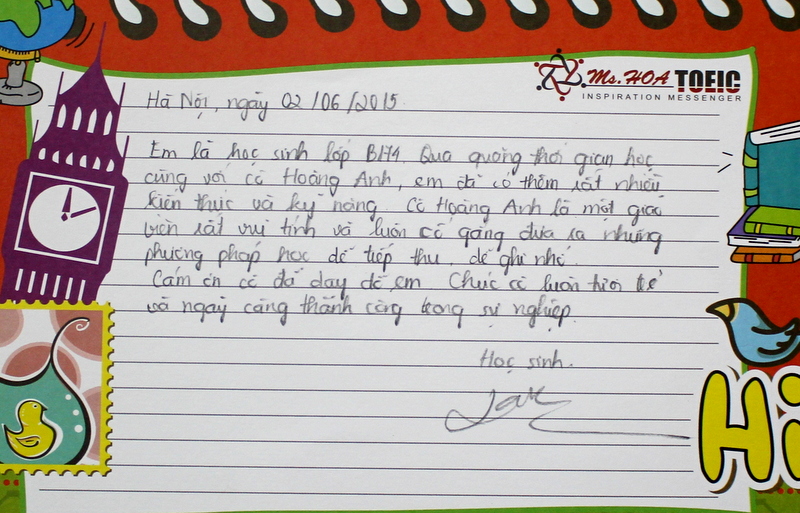 Ms. HOA TOEIC
INSPIRATION MESSENGER
Hà Nội, ngày 02/06/2015.
Em là học sinh lớp B174. Qua quãng thời gian học
cùng với cô Hoàng Anh, em đã có thêm rất nhiều
kiến thức và kỹ năng. Cô Hoàng Anh là một giáo
viên rất vui tính và luôn cố gắng đưa ra những
phương pháp học dễ tiếp thu, dễ ghi nhớ.
Cảm ơn cô đã dạy dỗ em. Chúc cô luôn tươi trẻ
và ngày càng thành công trong sự nghiệp.
Học sinh.
Hi